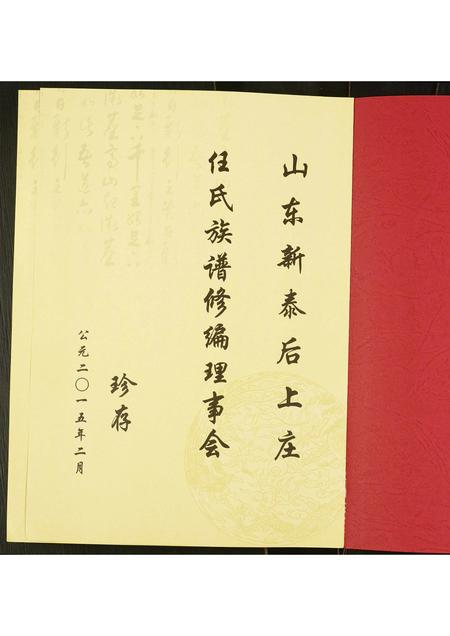 山东新泰后上庄
任氏族谱修编理事会
珍存
公元二〇一五年二月